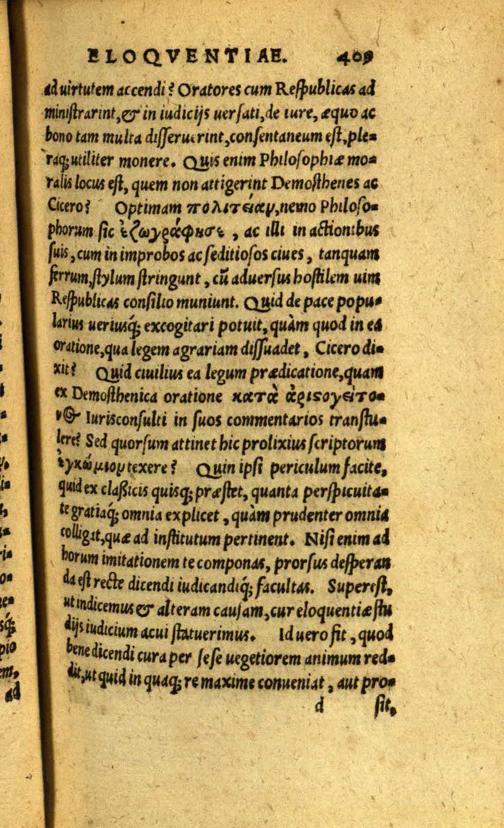 ELOQVENTIAE. 409
ad uirtutem accendi? Oratores cum Respublicas ad
ministrarint,& in iudicijs uersati,de iure, æquo ac
bono tam multa disseruerint,consentaneum est,ple-
raq; utiliter monere. Quis enim Philosophiæ mo-
ralis locus est, quem non attigerint Demosthenes ac
Cicero? Optimam πολιτείαν,nemo Philoso-
phorum sic ἐζωγράφησε, ac illi in actionibus
suis,cum in improbos ac seditiosos ciues, tanquam
ferrum,stylum stringunt, cū aduersus hostilem uim
Respublicas consilio muniunt. Quid de pace popu-
larius ueriusq; excogitari potuit, quàm quod in ea
oratione,qua legem agrariam dissuadet, Cicero di-
xit? Quid ciuilius ea legum prædicatione,quam
ex Demosthenica oratione κατὰ ἀριστογείτο-
ν@ Iurisconsulti in suos commentarios transtu-
lere? Sed quorsum attinet hic prolixius scriptorum
ἐγκώμιον texere? Quin ipsi periculum facite,
quid ex classicis quisq; præstet, quanta perspicuita-
te gratiaq; omnia explicet, quàm prudenter omnia
colligat,quæ ad institutum pertinent. Nisi enim ad
horum imitationem te componas, prorsus desperan
da est recte dicendi iudicandiq; facultas. Superest,
ut indicemus & alteram causam,cur eloquentiæ stu
dijs iudicium acui statuerimus. Id uero fit, quod
bene dicendi cura per sese uegetiorem animum red-
dit,ut quid in quaq; re maxime conueniat, aut pro-
d sit,
ad